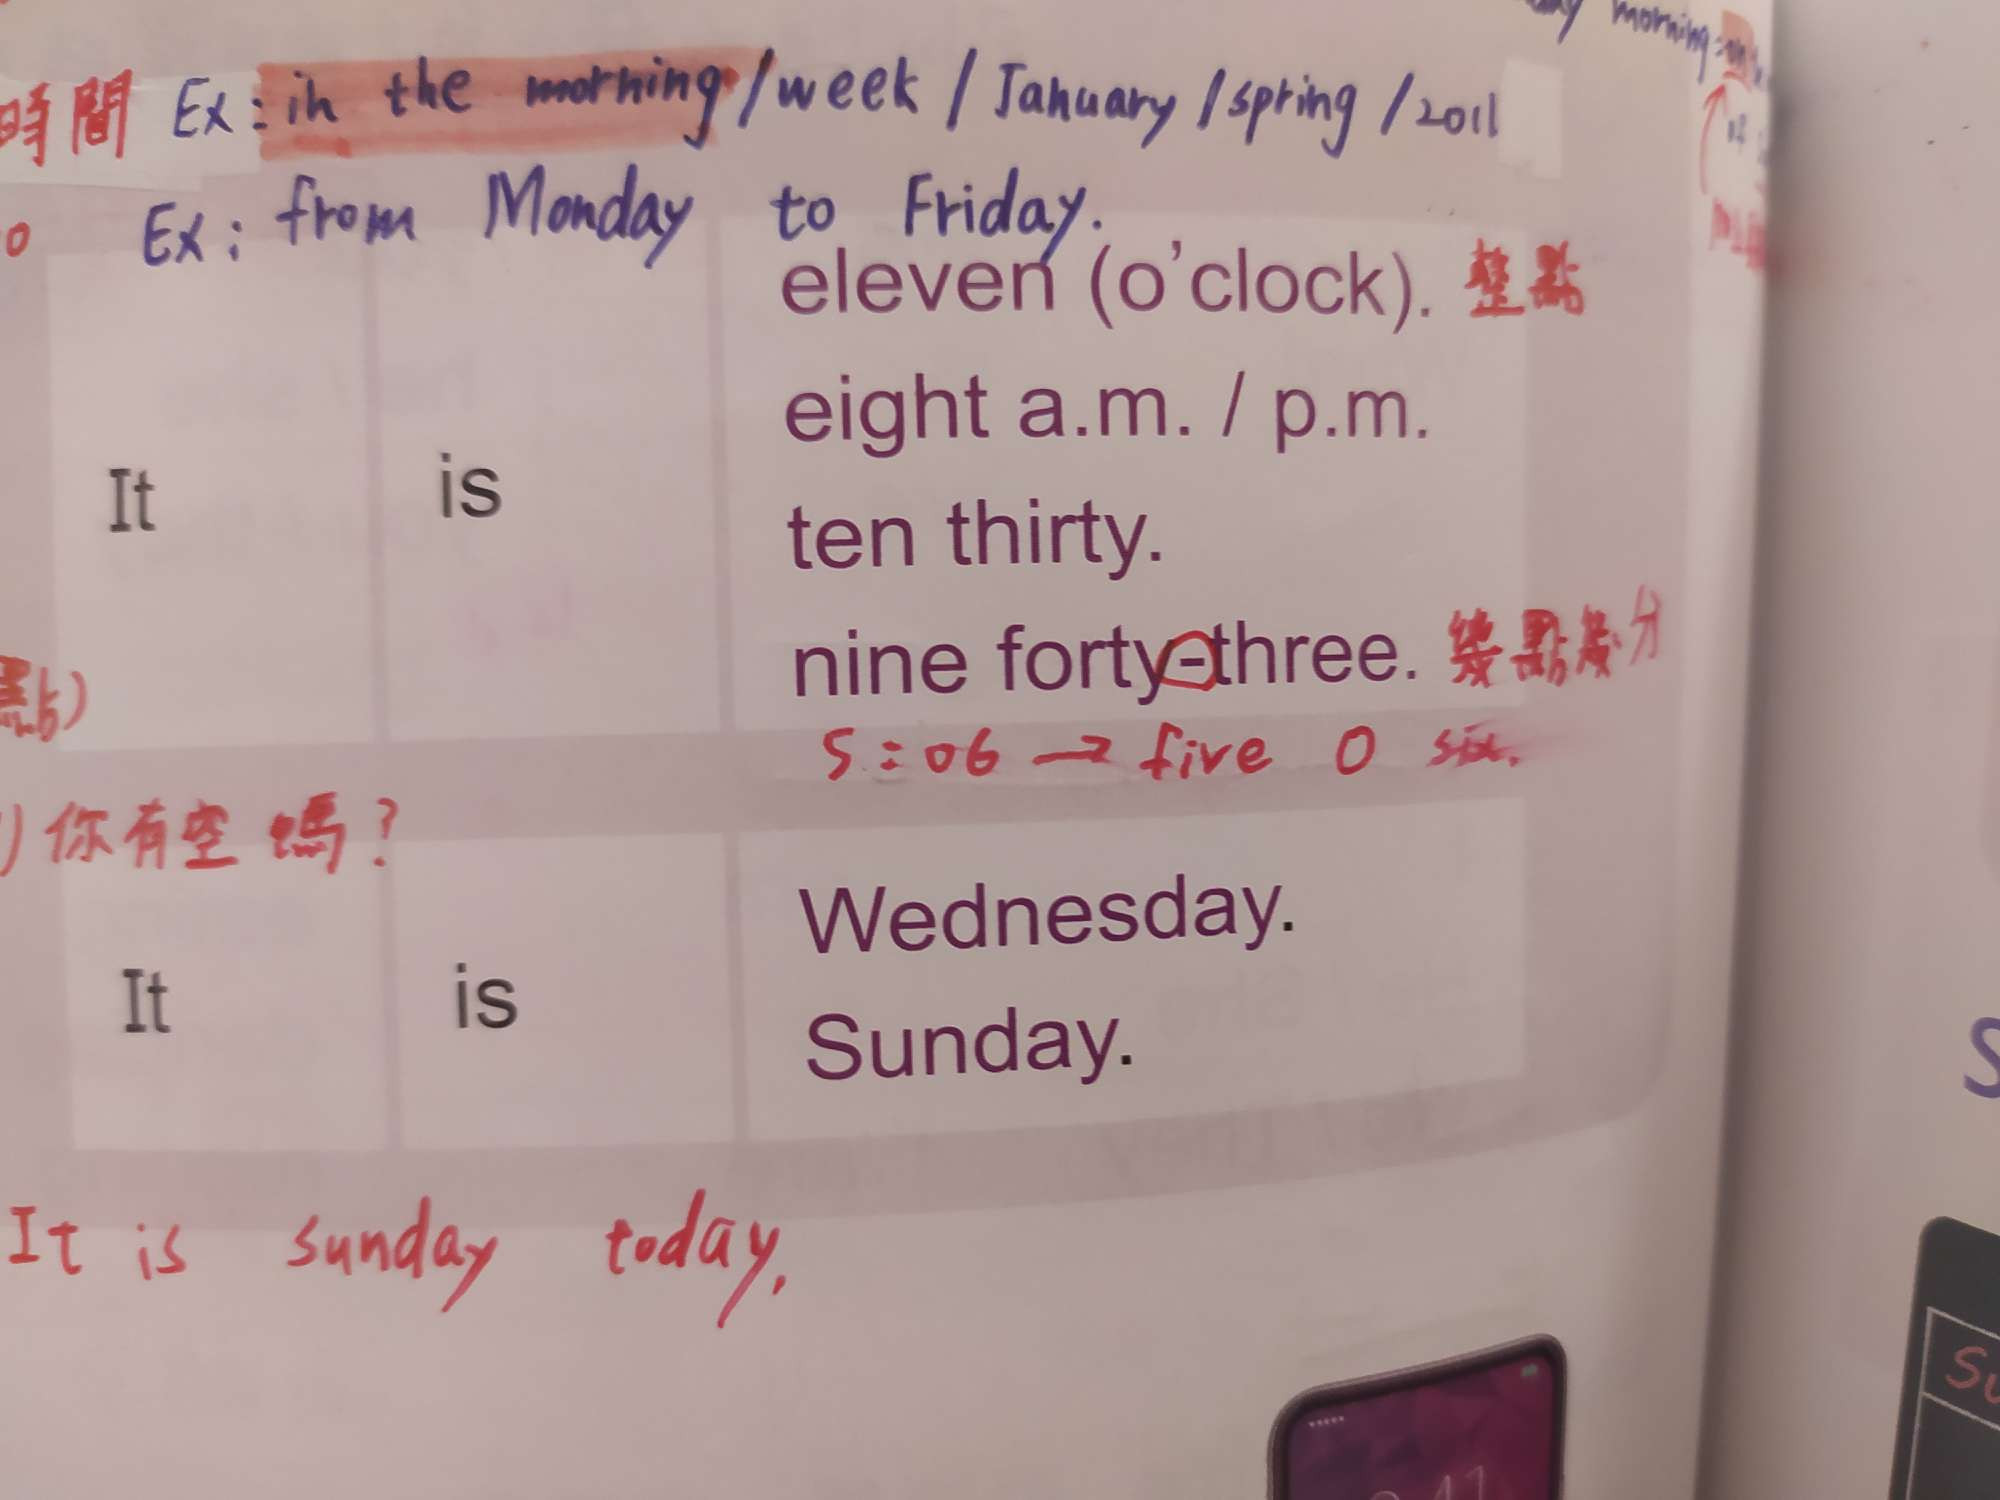 morning:
時間 Ex: in the morning/week / January / spring / 2011
o Ex: from Monday to Friday.
eleven (o'clock). 整點
eight a.m. / p.m.
It is
ten thirty.
nine forty-three. 幾點幾分
點)
5:06 → five O six.
) 你有空嗎?
Wednesday.
It is
Sunday.
It is sunday today.